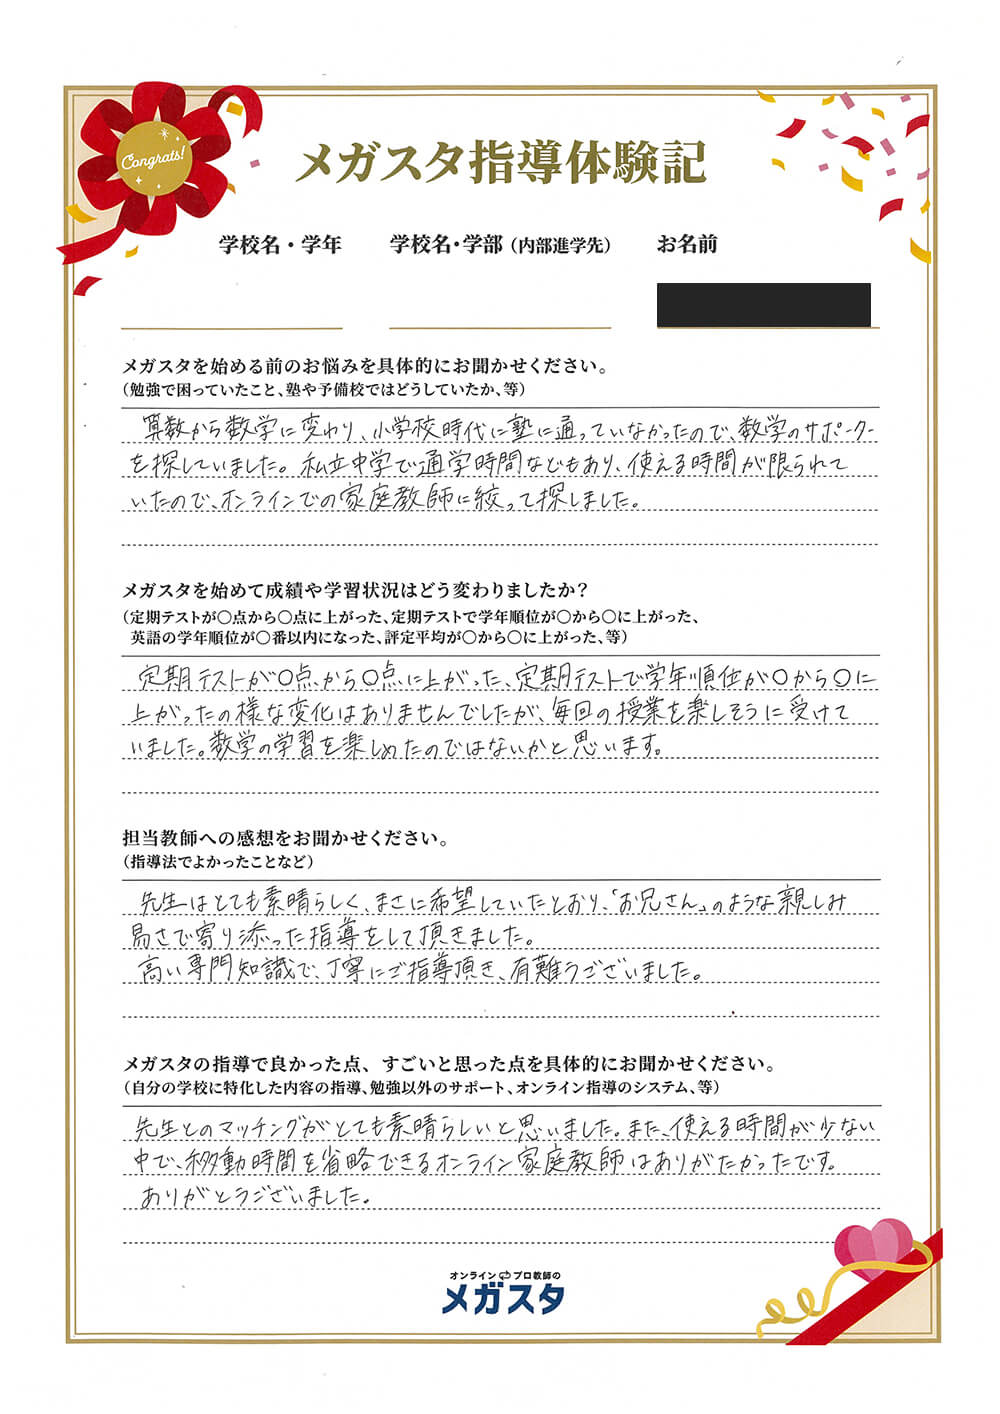 Congrats!
メガスタ指導体験記
学校名・学年 学校名・学部（内部進学先） お名前
メガスタを始める前のお悩みを具体的にお聞かせください。
（勉強で困っていたこと、塾や予備校ではどうしていたか、等）
算数から数学に変わり、小学校時代に塾に通っていなかったので、数学のサポーター
を探していました。私立中学で通学時間などもあり、使える時間が限られて
いたので、オンラインでの家庭教師に絞って探しました。
メガスタを始めて成績や学習状況はどう変わりましたか？
（定期テストが〇点から〇点に上がった、定期テストで学年順位が〇から〇に上がった、
英語の学年順位が〇番以内になった、評定平均が〇から〇に上がった、等）
定期テストが〇点から〇点に上がった、定期テストで学年順位が〇から〇に
上がったの様な変化はありませんでしたが、毎回の授業を楽しそうに受けて
いました。数学の学習を楽しめたのではないかと思います。
担当教師への感想をお聞かせください。
（指導法でよかったことなど）
先生はとても素晴らしく、まさに希望していたとおり、「お兄さん」のような親しみ
易さで寄り添った指導をして頂きました。
高い専門知識で、丁寧にご指導頂き、有難うございました。
メガスタの指導で良かった点、すごいと思った点を具体的にお聞かせください。
（自分の学校に特化した内容の指導、勉強以外のサポート、オンライン指導のシステム、等）
先生とのマッチングがとても素晴らしいと思いました。また、使える時間が少ない
中で、移動時間を省略できるオンライン家庭教師はありがたかったです。
ありがとうございました。
オンライン プロ教師の
メガスタ